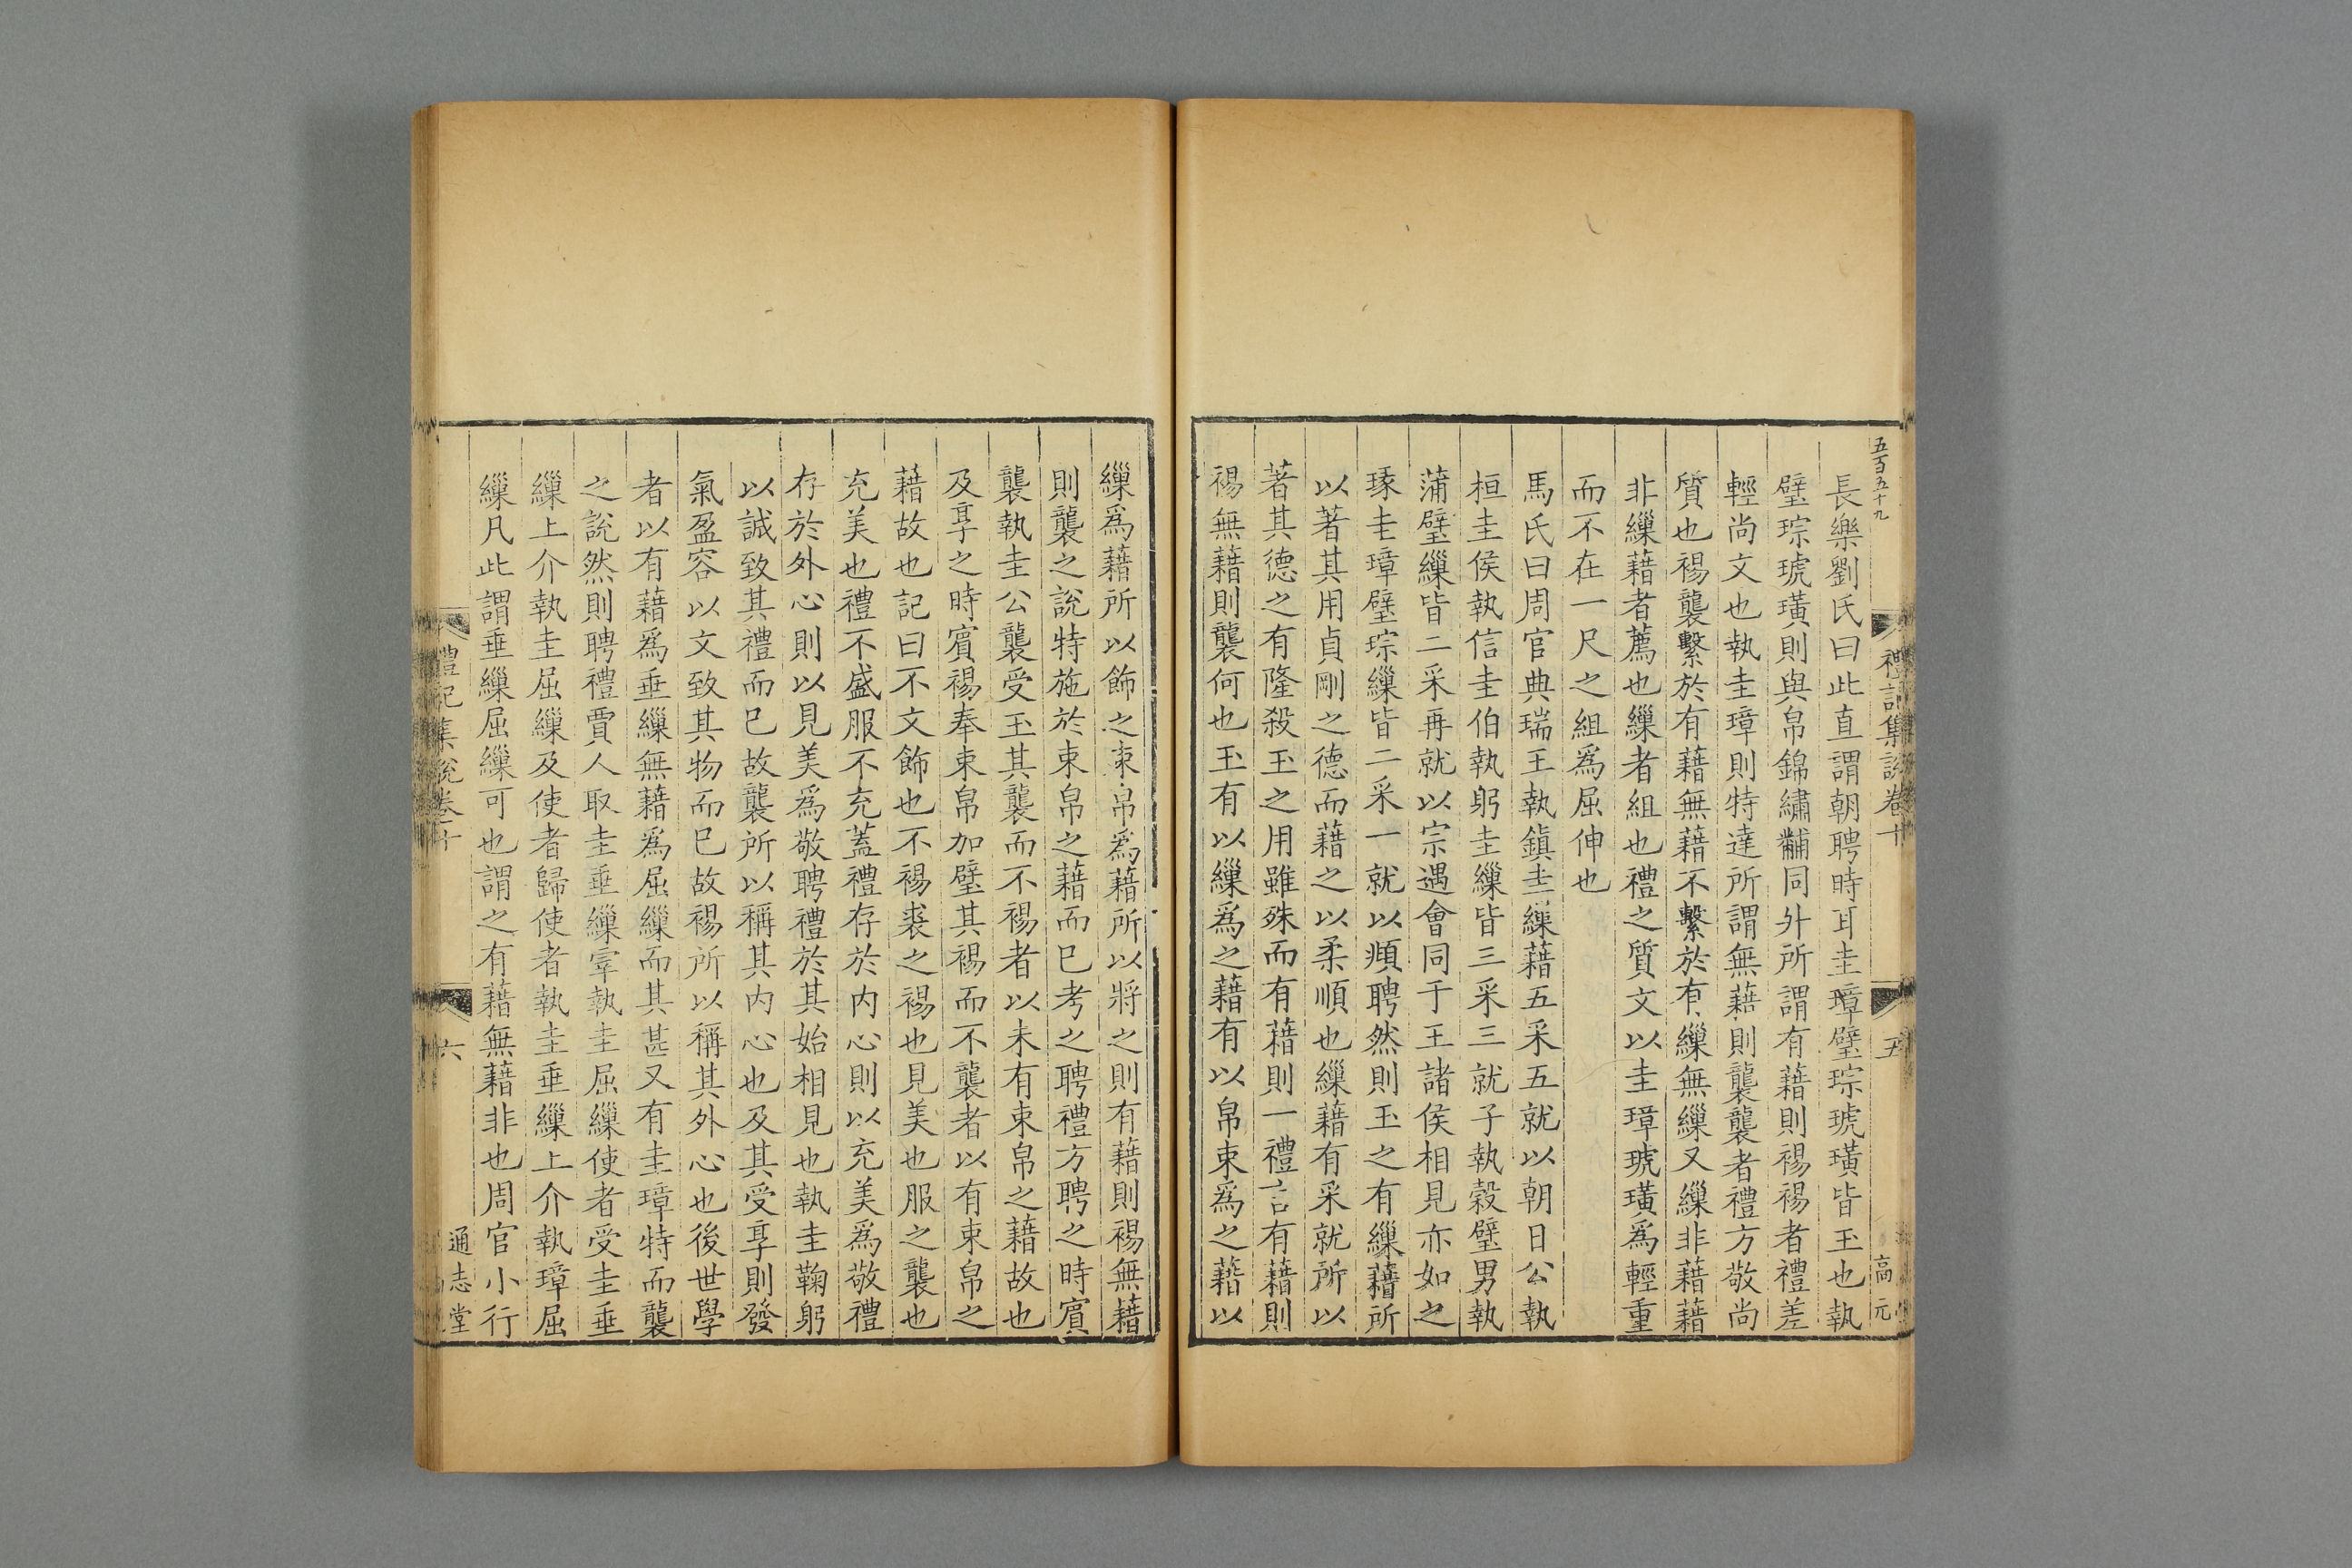 五百五十九
禮記集說卷十
五
高元
長樂劉氏曰此直謂朝聘時耳圭璋璧琮琥璜皆玉也執
璧琮琥璜則與帛錦繡黼同外所謂有藉則裼裼者禮差
輕尚文也執圭璋則特達所謂無藉則襲襲者禮方敬尚
質也裼襲繫於有藉無藉不繫於有繅無繅又繅非藉藉
非繅藉者薦也繅者組也禮之質文以圭璋琥璜爲輕重
而不在一尺之組爲屈伸也
馬氏曰周官典瑞王執鎮圭繅藉五采五就以朝日公執
桓圭侯執信圭伯執躬圭繅皆三采三就子執穀璧男執
蒲璧繅皆二采再就以宗遇會同于王諸侯相見亦如之
瑑圭璋璧琮繅皆二采一就以頫聘然則玉之有繅藉所
以著其用貞剛之德而藉之以柔順也繅藉有采就所以
著其德之有隆殺玉之用雖殊而有藉則一禮言有藉則
裼無藉則襲何也玉有以繅爲之藉有以帛束爲之藉以
繅爲藉所以飾之束帛爲藉所以將之則有藉則裼無藉
則襲之說特施於束帛之藉而已考之聘禮方聘之時賓
襲執圭公襲受玉其襲而不裼者以未有束帛之藉故也
及享之時賓裼奉束帛加璧其裼而不襲者以有束帛之
藉故也記曰不文飾也不裼裘之裼也見美也服之襲也
充美也禮不盛服不充蓋禮存於内心則以充美爲敬禮
存於外心則以見美爲敬聘禮於其始相見也執圭鞠躬
以誠致其禮而已故襲所以稱其内心也及其受享則發
氣盈容以文致其物而已故裼所以稱其外心也後世學
者以有藉爲垂繅無藉爲屈繅而其甚又有圭璋特而襲
之說然則聘禮賈人取圭垂繅宰執圭屈繅使者受圭垂
繅上介執圭屈繅及使者歸使者執圭垂繅上介執璋屈
繅凡此謂垂繅屈繅可也謂之有藉無藉非也周官小行
禮記集說卷十
六
通志堂